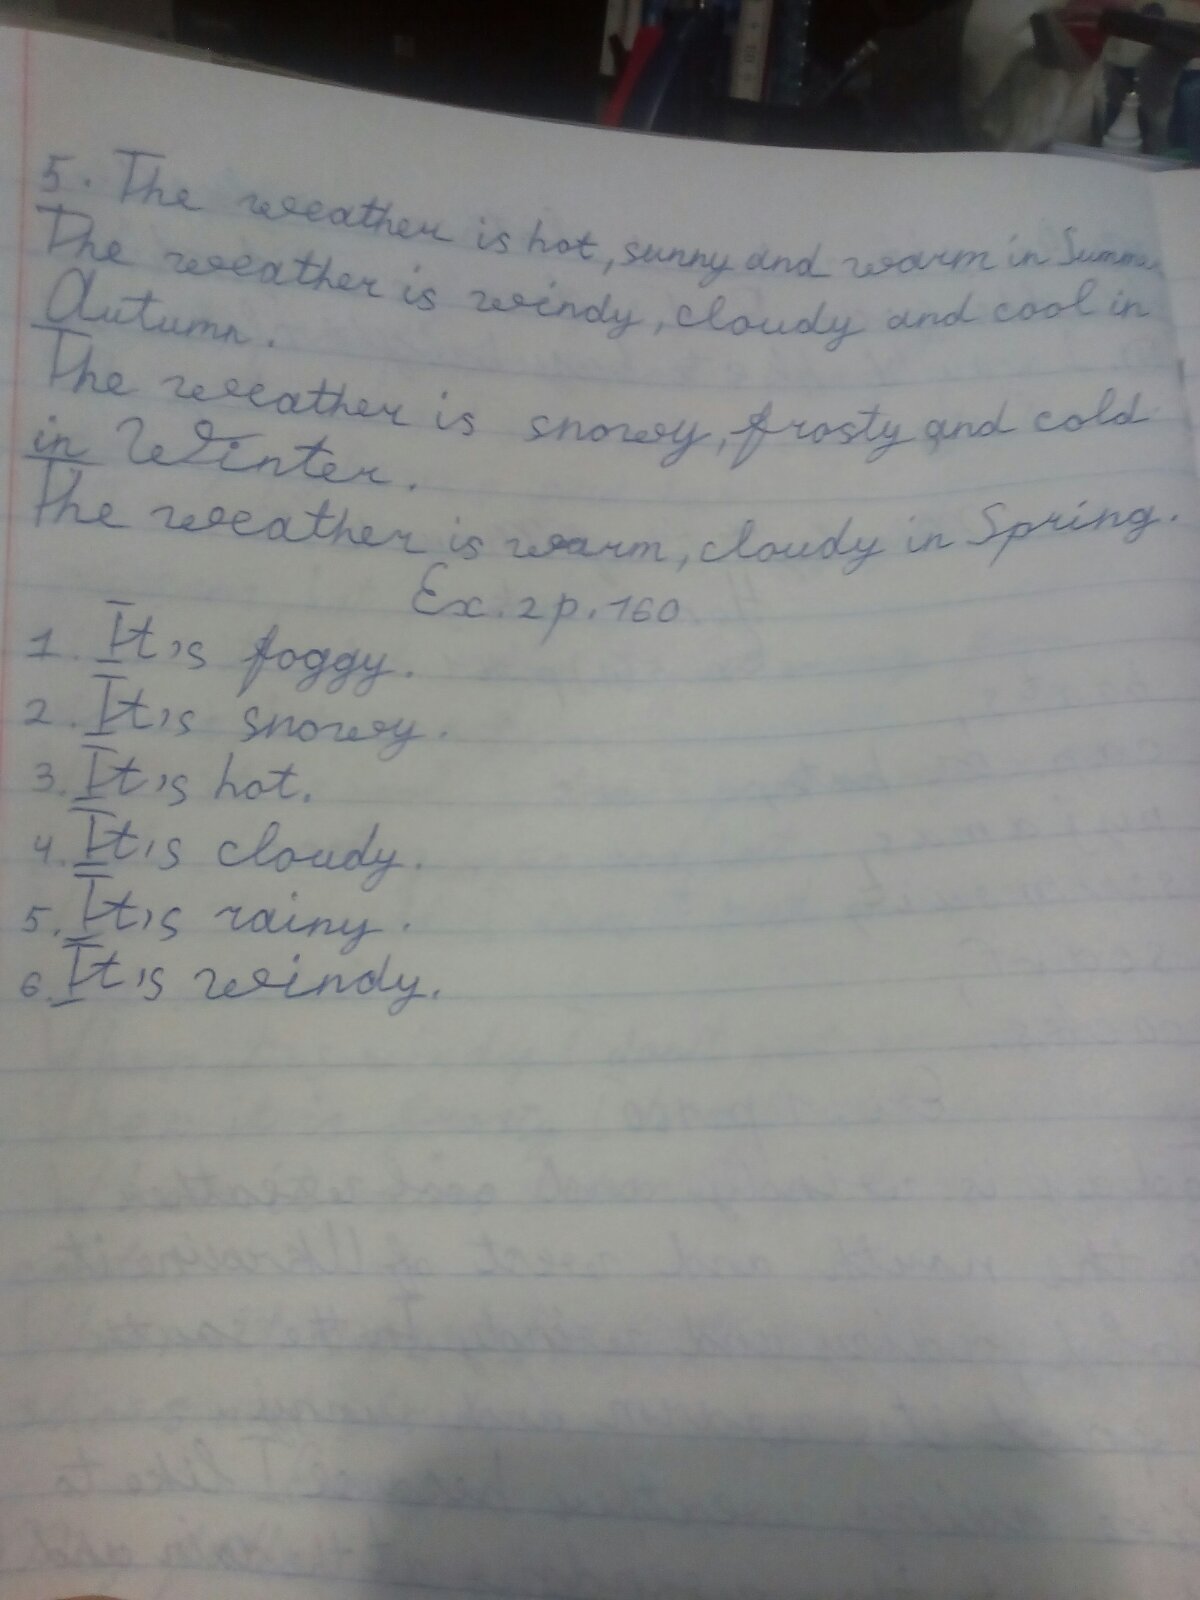 5. The weather is hot, sunny and warm in Summer
The weather is windy, cloudy and cool in
Autumn.
The weather is snowy, frosty and cold
in Winter.
The weather is warm, cloudy in Spring.
Ex. 2 p. 160
1. It's foggy.
2. It's snowy.
3. It's hot.
4. It's cloudy.
5. It's rainy.
6. It's windy.